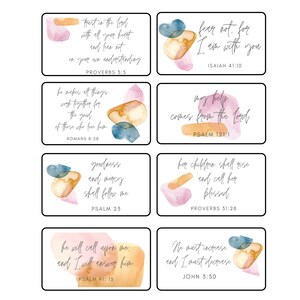 trust in the Lord
with all your heart
and lean not
on your own understanding
PROVERBS 3:5
fear not, for
I am with you
ISAIAH 41:10
he makes all things
work together for
the good
of those who love him
ROMANS 8:28
my help
comes from the Lord
PSALM 121:1
goodness
and mercy
shall follow me
PSALM 23
her children shall rise
and call her
blessed
PROVERBS 31:28
he will call upon me,
and I will answer him
PSALM 91:15
He must increase,
and I must decrease
JOHN 3:30